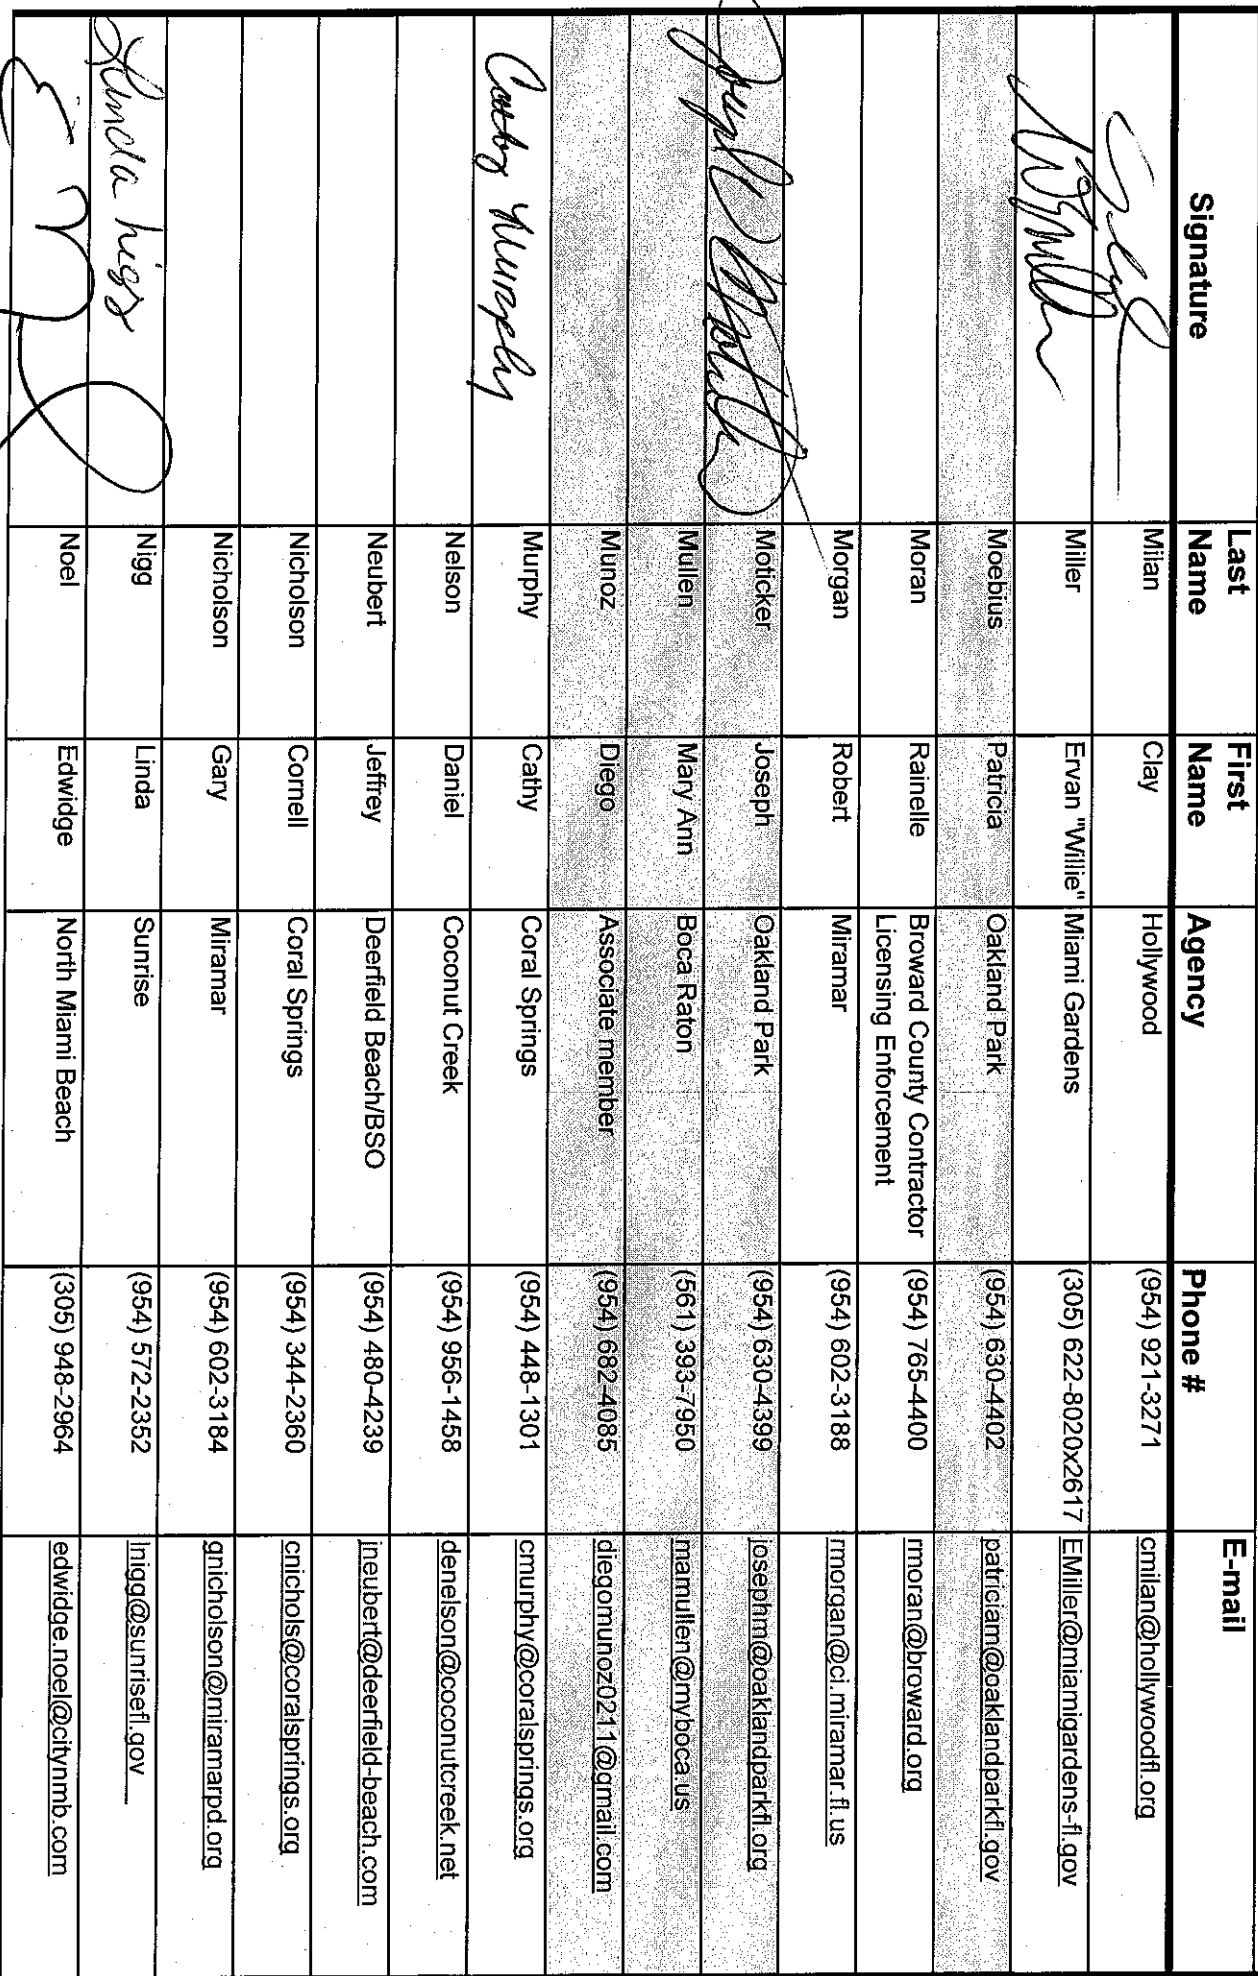 Signature Last Name First Name Agency Phone # E-mail
Milan Clay Hollywood (954) 921-3271 cmilan@hollywoodfl.org
Miller Ervan "Willie" Miami Gardens (305) 622-8020x2617 EMiller@miamigardens-fl.gov
Moebius Patricia Oakland Park (954) 630-4402 patriciam@oaklandparkfl.gov
Moran Rainelle Broward County Contractor Licensing Enforcement (954) 765-4400 rmoran@broward.org
Morgan Robert Miramar (954) 602-3188 rmorgan@ci.miramar.fl.us
Moticker Joseph Oakland Park (954) 630-4399 josephm@oaklandparkfl.org
Mullen Mary Ann Boca Raton (561) 393-7950 mamullen@myboca.us
Munoz Diego Associate member (954) 682-4085 diegomunoz0211@gmail.com
Cathy Murphy Murphy Cathy Coral Springs (954) 448-1301 cmurphy@coralsprings.org
Nelson Daniel Coconut Creek (954) 956-1458 denelson@coconutcreek.net
Neubert Jeffrey Deerfield Beach/BSO (954) 480-4239 jneubert@deerfield-beach.com
Nicholson Cornell Coral Springs (954) 344-2360 cnichols@coralsprings.org
Nicholson Gary Miramar (954) 602-3184 gnicholson@miramarpd.org
Linda Nigg Nigg Linda Sunrise (954) 572-2352 lnigg@sunrisefl.gov
Noel Edwidge North Miami Beach (305) 948-2964 edwidge.noel@citynmb.com